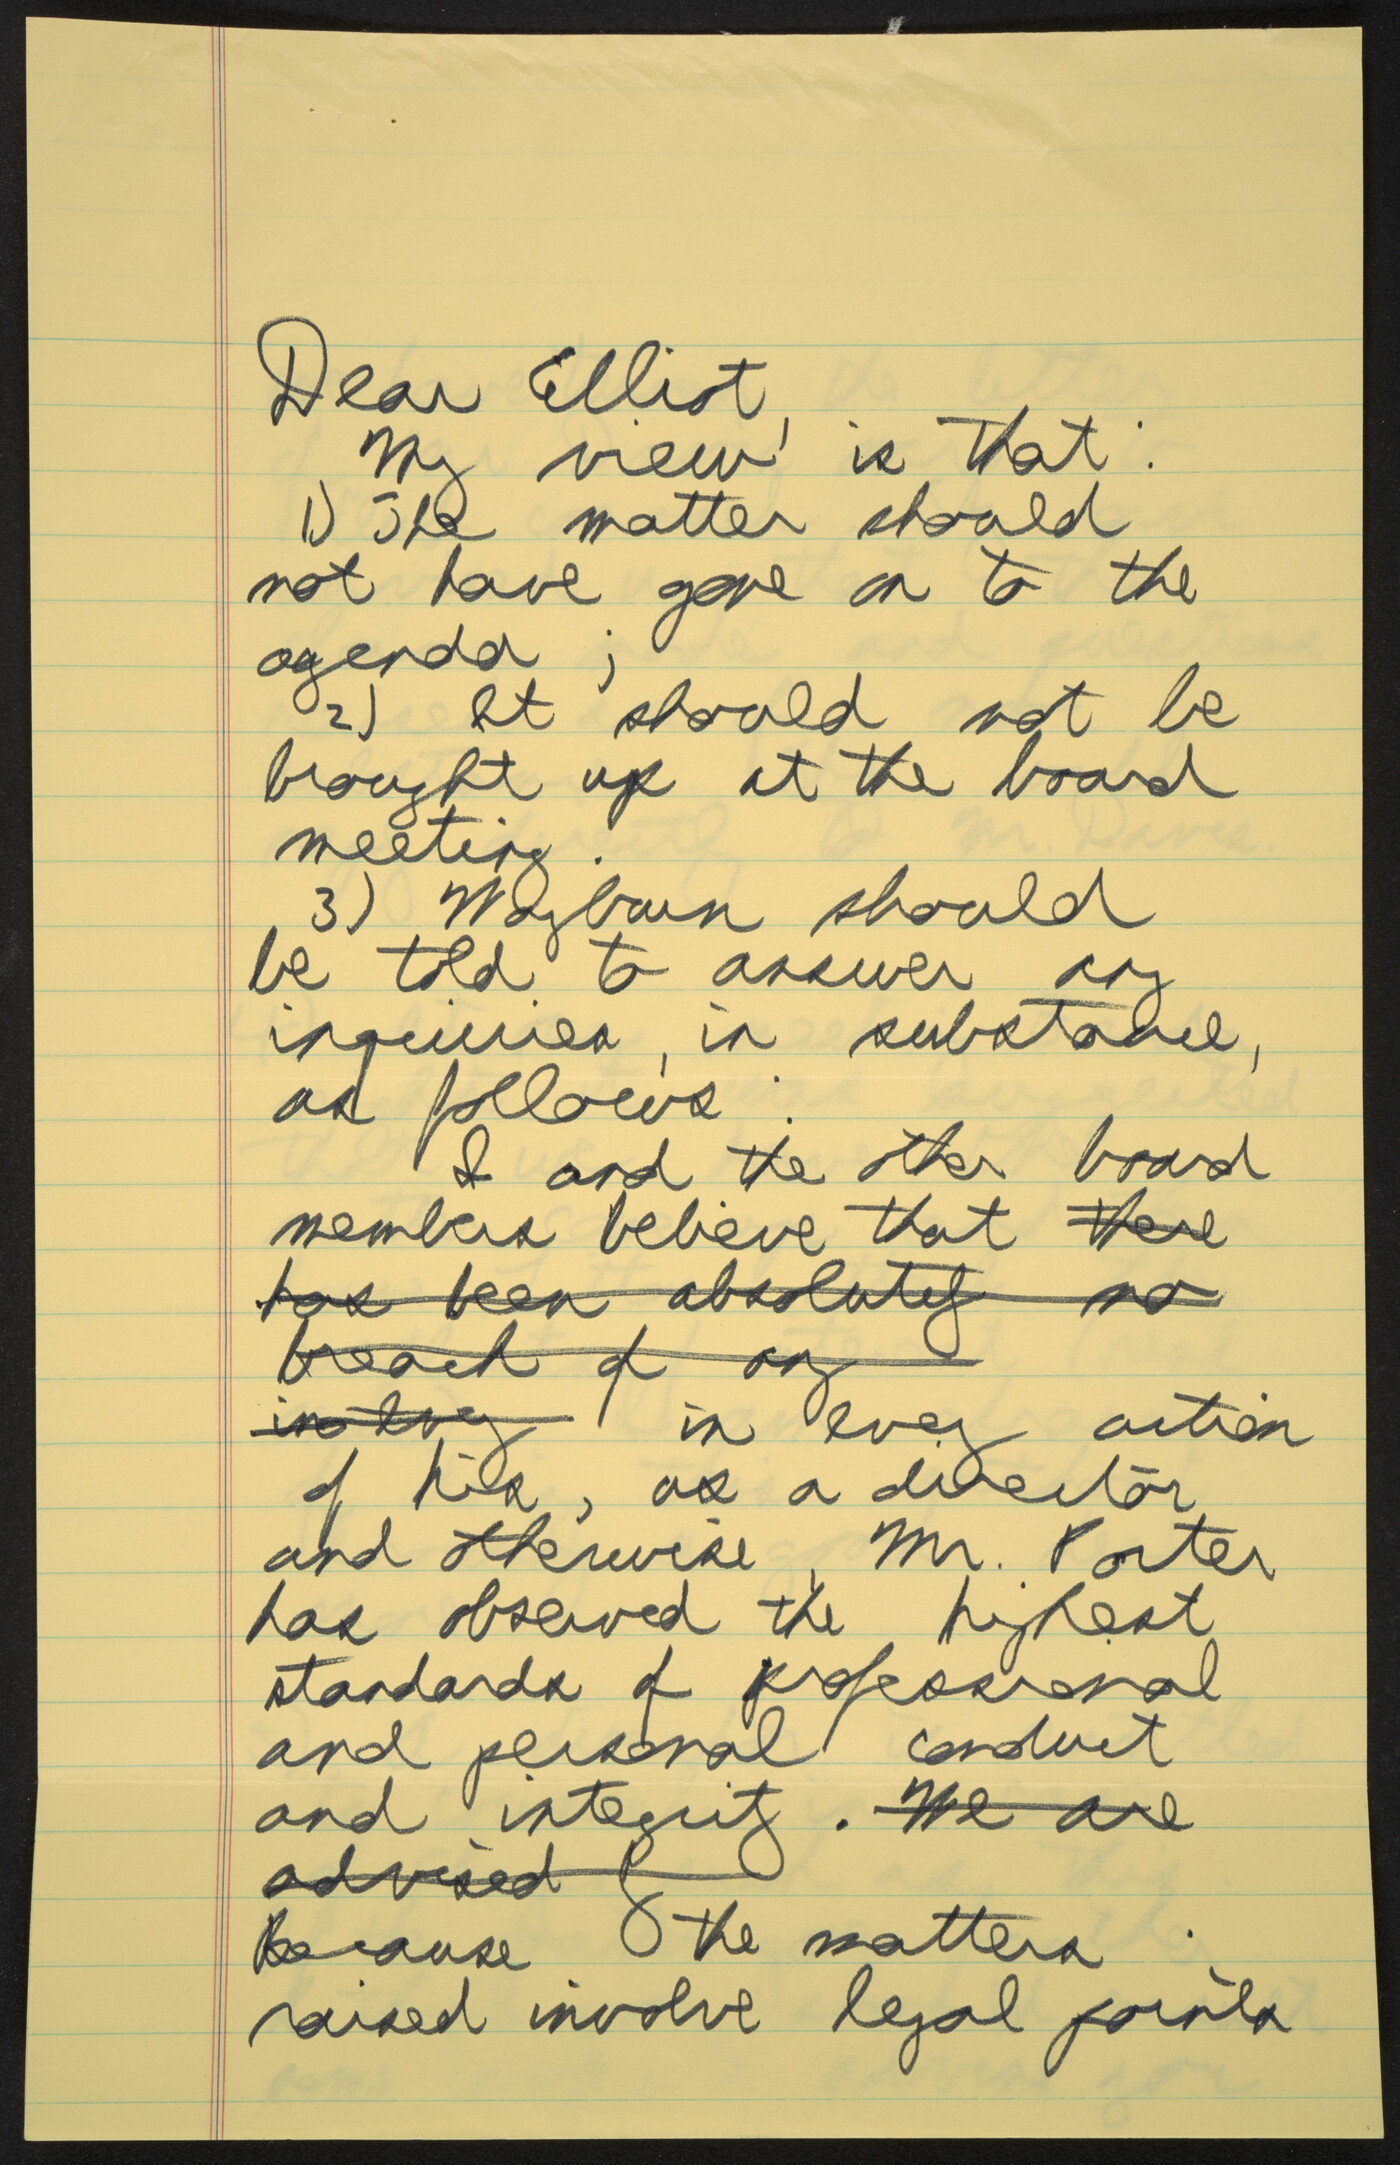 Dear Elliot,
My view is that:
1) The matter should
not have gone on to the
agenda;
2) It should not be
brought up at the board
meeting.
3) Wayburn should
be told to answer any
inquiries, in substance,
as follows:
I and the other board
members believe that there
has been absolutely no
breach of any
in every in every action
of his, as a director
and otherwise, Mr. Porter
has observed the highest
standards of professional
and personal conduct
and integrity. We are
advised
Because the matters
raised involve legal points